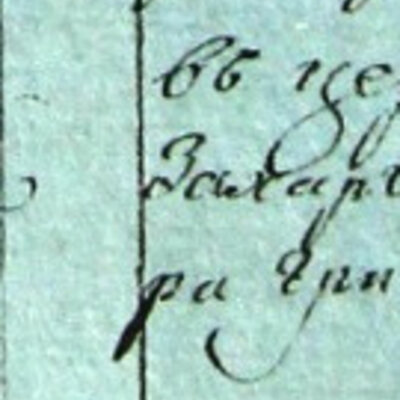 въ цер
Захаръ
ра Гри